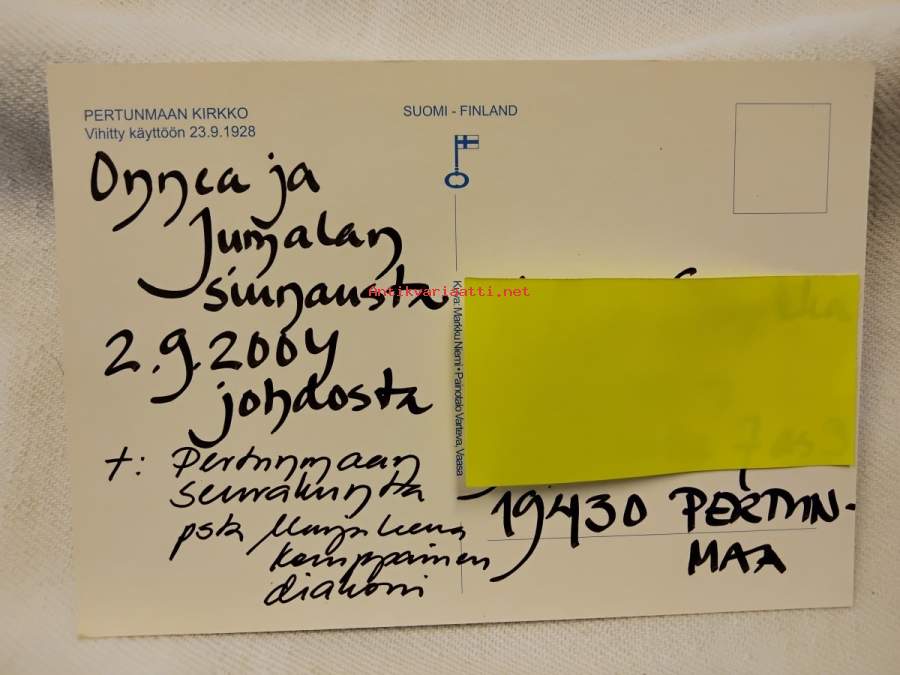 PERTUNMAAN KIRKKO
Vihitty käyttöön 23.9.1928
SUOMI - FINLAND
Onnea ja
Jumalan
siunausta
2.9.2004
johdosta
t: Pertunmaan
seurakunta
psta
Kemppainen
diakoni
Kuva: Markku Niemi • Painotalo Varteva, Vaasa
Antikvariaatti.net
19430 PERTUN-
MAA